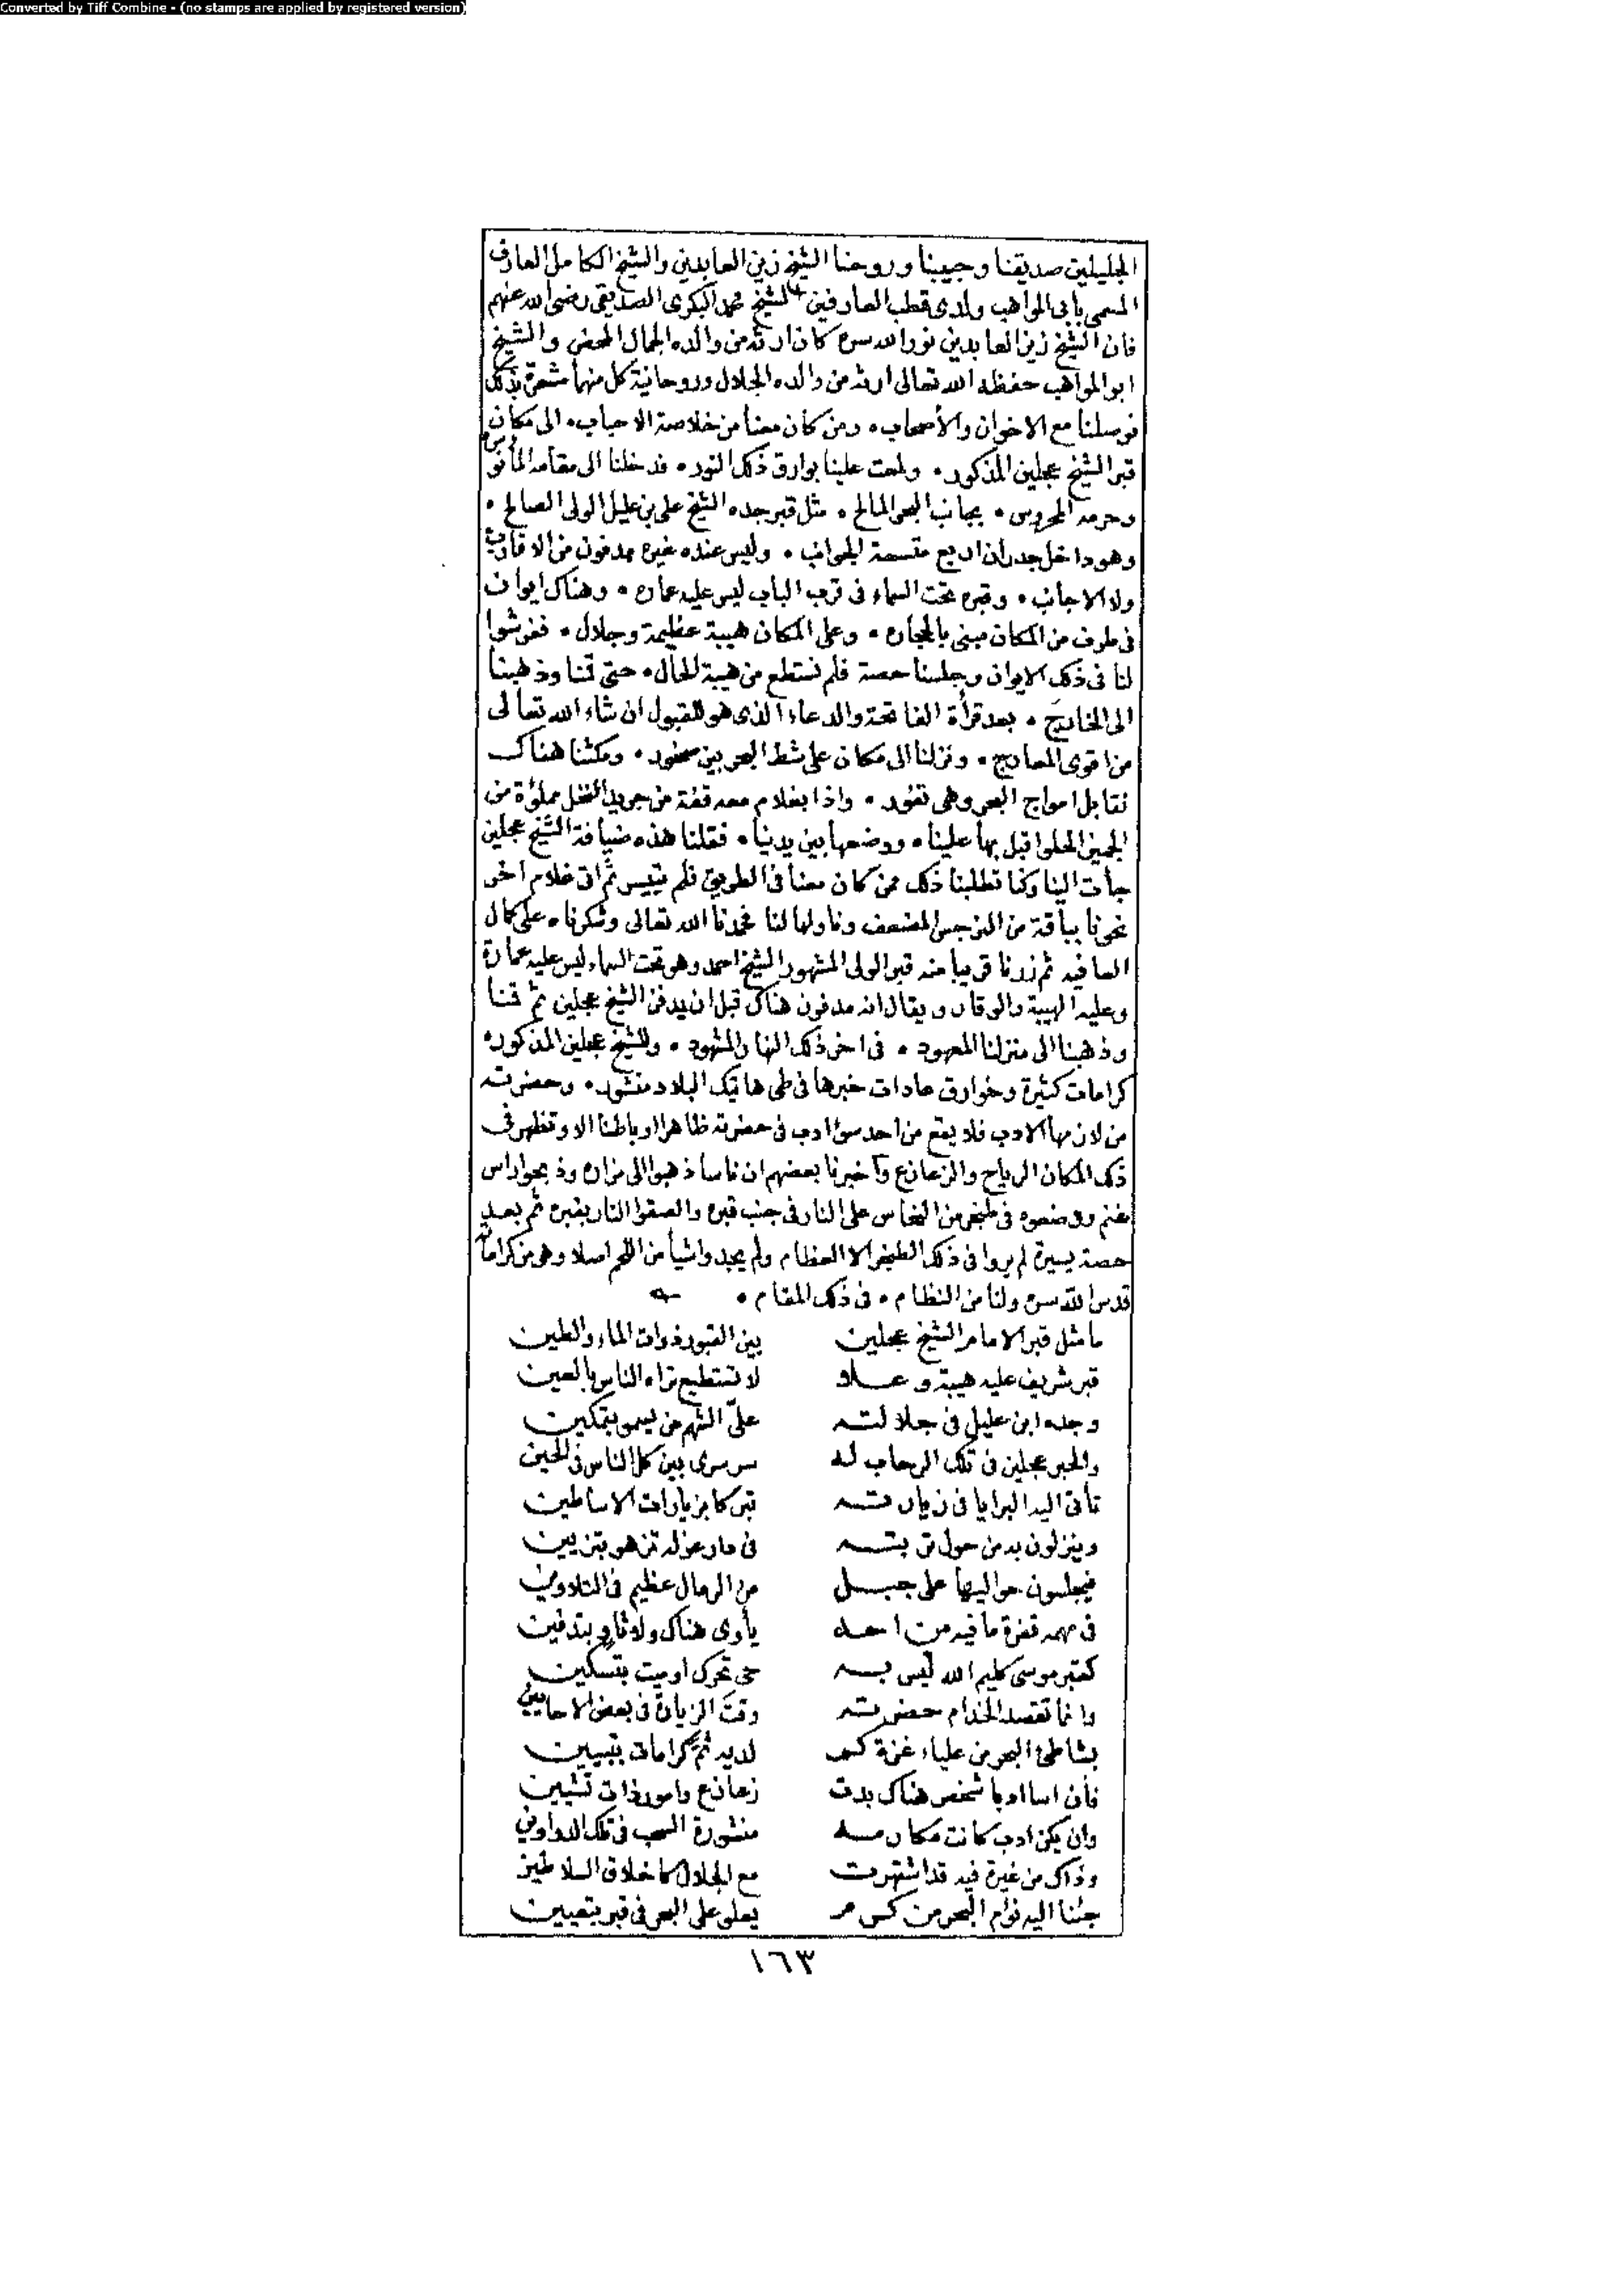 Converted by Tiff Combine - (no stamps are applied by registered version)
الجليلين صديقنا وحبيبنا وروحنا الشيخ زين العابدين والشيخ الكامل العارف
المسمى بأبي المواهب ولدي قطب العارفين الشيخ محمد البكرى الصديقي رضى الله عنهم
فان الشيخ زين العابدين نور الله سره كان ارثه من والده الجمال المحض والشيخ
ابو المواهب حفظه الله تعالى ارثه من والده الجلال وروحانية كل منهما مشعرة بذلك
فوصلنا مع الاخوان والأصحاب، ومن كان معنا من خلاصة الاحباب، الى مكان
قبر الشيخ عجلين المذكور، ولمعت علينا بوارق ذلك النور، فدخلنا الى مقامه المأنوس
وحرمه المحروس، بجانب البحر المالح، مثل قبر جده الشيخ على بن عليل الولى الصالح،
وهو داخل جدران اربع متسعة الجوانب، وليس عنده غيره مدفون من الاقارب
ولا الاجانب، وقبره تحت السماء فى قرب الباب ليس عليه عماره، وهناك ايوان
فى طرف من المكان مبنى بالحجاره، وعلى المكان هيبة عظيمة وجلال، ففرشوا
لنا فى ذلك الايوان وجلسنا حصة فلم نستطع من هيبة الحال، حتى قمنا وذهبنا
الى الخارج، بعد قرأة الفاتحة والدعاء الذى هو للقبول ان شاء الله تعالى
من اقوى المعارج، ونزلنا الى مكان على شط البحر بين صخور، ومكثنا هناك
نقابل امواج البحر وهى تفور، واذا بغلام معه قفة من جريد النخل مملؤة من
الجميز الحلو اقبل بها علينا، ووضعها بين يدينا، فقلنا هذه ضيافة الشيخ عجلين
جأت الينا وكنا تطلبنا ذلك ممن كان معنا فى الطريق فلم يتيسر ثم اتى غلام آخر
نحونا بباقة من النرجس المضعف وناولها لنا فحمدنا الله تعالى وشكرناه على كمال
العافيه ثم زرنا قريبا منه قبر الولى المشهور الشيخ احمد وهو تحت السماء ليس عليه عمارة
وعليه الهيبة والوقار ويقال انه مدفون هناك قبل ان يدفن الشيخ عجلين ثم قمنا
وذهبنا الى منزلنا المعهود، فى اخر ذلك النهار المشهود، وللشيخ عجلين المذكور،
كرامات كثيرة وخوارق عادات خبرها فى طى هاتيك البلاد منشور، وحضرته
من لازمها الادب فلا يقع من احد سؤ ادب فى حضرته ظاهرا او باطنا الا وتظهر فى
ذلك المكان الرياح والزعازع وأخبرنا بعضهم ان ناسا ذهبوا الى مزاره وذبحوا راس
غنم ووضعوه فى طنجر من النحاس على النار فى جنب قبره والصقوا النار بقبره ثم بعد
حصة يسيرة لم يروا فى ذلك الطنجر الا العظام ولم يجدوا شيأ من اللحم اصلا وهو من كراماته
قدس الله سره ولنا من النظام، فى ذلك المقام،
ما مثل قبر الامام الشيخ عجلين بين القبور ذوات الماء والطين
قبر شريف عليه هيبة وعلا لا تستطيع تراه الناس بالعين
وجده ابن عليل فى جلالته علىّ الشهم من يسمو بتمكين
والحبر عجلين فى تلك الرحاب له سر سرى بين كل الناس فى الحين
تأتى اليه البرايا فى زيارته تبركا بزيارات الاساطين
وينزلون به من حول تربته فى دار عز له تزهو بتزيين
فيجلسون حواليها على جبل من الرمال عظيم فى التلاوين
فى مهمه قفرة ما فيه من احد يأوى هناك ولا ثاو بتدفين
كقبر موسى كليم الله ليس به حى تحرك او ميت بتسكين
وانما تقصد الخدام حضرته وقت الزيارة فى بعض الاحايين
بشاطئ البحر من علياء غزة كم لديه ثم كرامات بتبيين
فأن اسا ادبا شخص هناك بدت زعازع وامور ذات تشيين
وان يكن ادب كانت مكارمه منشورة السحب فى تلك الدواوين
وذاك من غيرة فيه قد اشتهرت مع الجلال كاخلاق السلاطين
جئنا اليه نؤم البحر من كرم يعلو على البحر فى قبر بتعيين
١٦٣